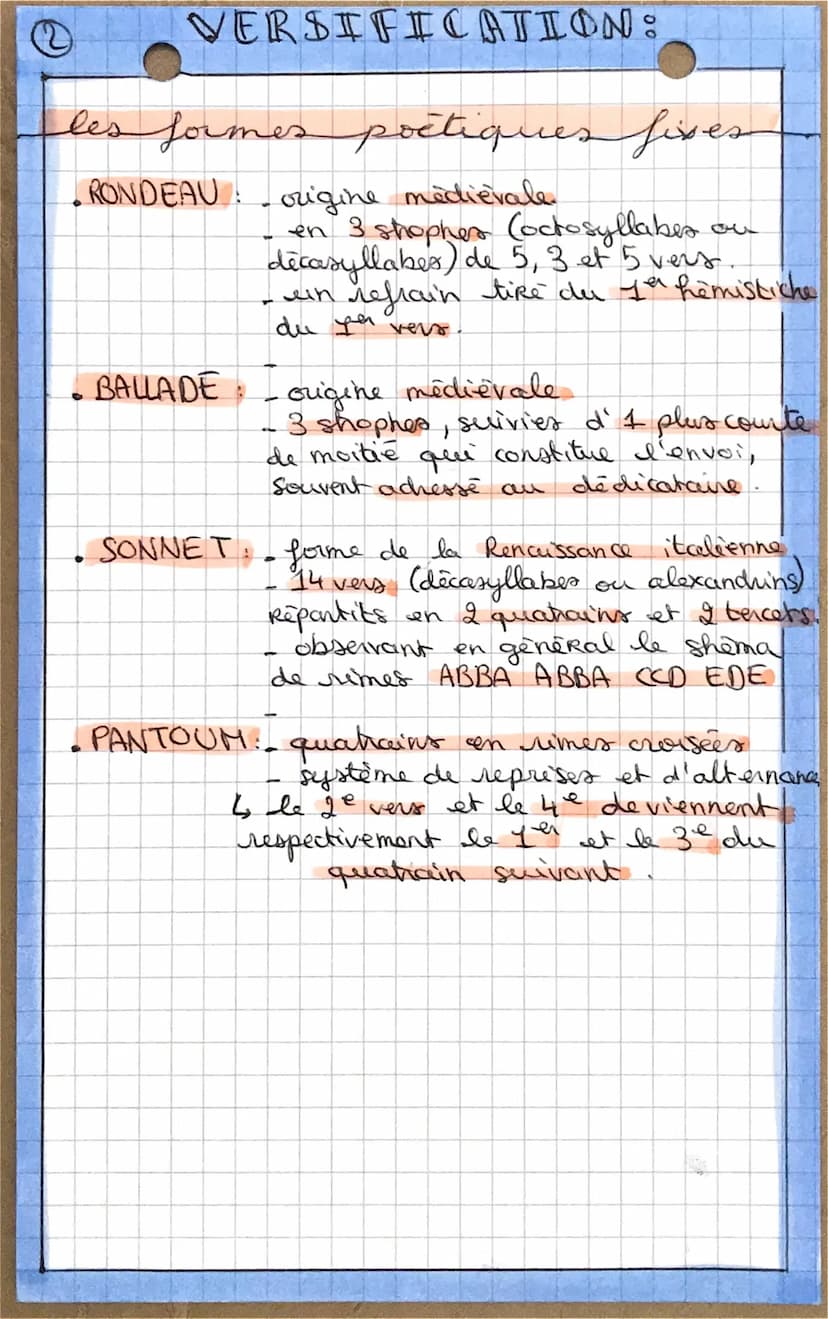 2 VERSIFICATION:
les formes poétiques fixes
. RONDEAU : - origine médiévale
- en 3 strophes (octosyllabes ou
décasyllabes) de 5, 3 et 5 vers.
- un refrain tiré du 1er hémistiche
du 1er vers.
. BALLADE : - origine médiévale
- 3 strophes, suivies d' 1 plus courte
de moitié qui constitue l'envoi,
souvent adressé au dédicataire.
. SONNET : - forme de la Renaissance italienne
- 14 vers (décasyllabes ou alexandrins)
Répartits en 2 quatrains et 2 tercets.
- observant en général le shéma
de rimes ABBA ABBA CCD EDE
. PANTOUM : - quatrains en rimes croisées
- système de reprises et d'alternance
↳ le 2e vers et le 4e deviennent
respectivement le 1er et le 3e du
quatrain suivant.